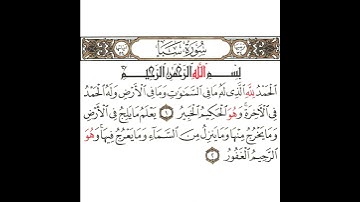 سُورَةُ سَبَإٍ
بِسْمِ اللَّهِ الرَّحْمَٰنِ الرَّحِيمِ
الْحَمْدُ لِلَّهِ الَّذِي لَهُ مَا فِي السَّمَٰوَٰتِ وَمَا فِي الْأَرْضِ وَلَهُ الْحَمْدُ
فِي الْآخِرَةِ وَهُوَ الْحَكِيمُ الْخَبِيرُ ١ يَعْلَمُ مَا يَلِجُ فِي الْأَرْضِ
وَمَا يَخْرُجُ مِنْهَا وَمَا يَنزِلُ مِنَ السَّمَاءِ وَمَا يَعْرُجُ فِيهَا وَهُوَ
الرَّحِيمُ الْغَفُورُ ٢